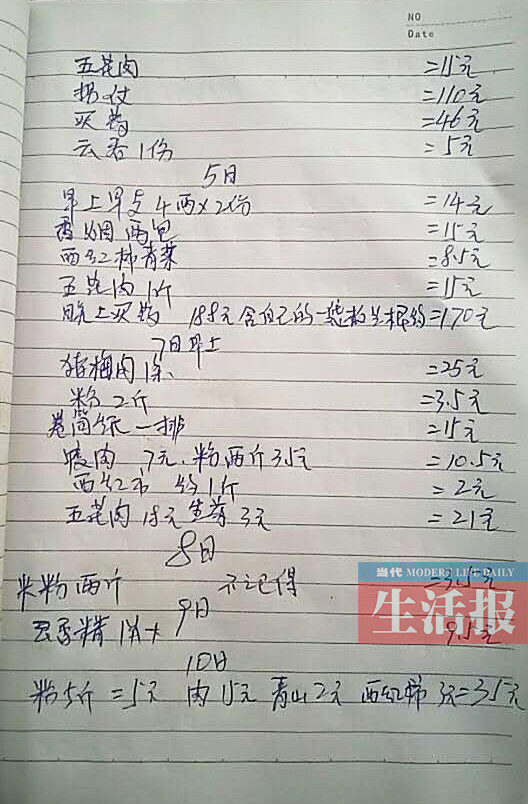 NO
Date
五花肉 =15元
拐付 =110元
买药 =46元
云吞1份 =5元
5日
早上早点4两×2份 =14元
香烟两包 =15元
西红柿青菜 =8.5元
五花肉1斤 =15元
晚上买药 188元含自己的一些板兰根约=170元
7日早上
猪梅肉1条 =25元
粉2斤 =3.5元
卷筒纸一排 =15元
肉 7元、粉两斤3.5元 =10.5元
西红市 1斤 =2元
五花肉18元生菜3元 =21元
8日
米粉两斤 不记得 =3.5元
当代 MODERN LIFE DAILY
生活报
9日
9.5元
10日
粉5斤=5元 肉15元 青山2元 西红柿3元=35元